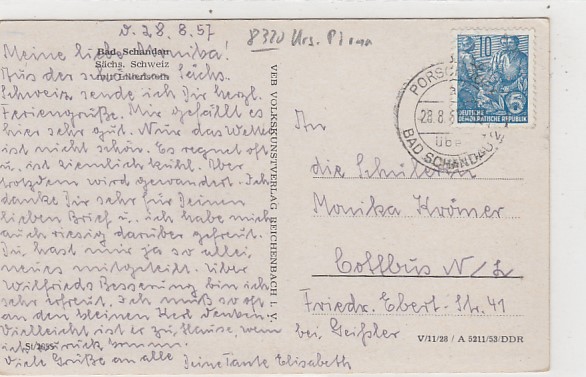 d. 28.8.57
8320 Krs. Pirna
Bad Schandau
Sächs. Schweiz
mit Lilienstein
Meine liebe Monika!
Aus der schönen Sächs.
Schweiz sende ich Dir herzl.
Feriengrüße. Mir gefällt es
hier sehr gut. Nur das Wetter
ist nicht schön. Es regnet oft
u. ist ziemlich kühl. Aber
trotzdem wird gewandert. Ich
danke Dir sehr für Deinen
lieben Brief u. ich habe mich
auch riesig darüber gefreut.
Du hast mir ja so allerl.
neues mitgeteilt. Über
Wilfrieds Besserung bin ich
sehr erfreut. Ich muß so oft
an den kleinen Kerl denken.
Vielleicht ist er zu Hause, wenn
ich zurück komm.
Viele Grüße an alle Deine Tante Elisabeth
VEB VOLKSKUNSTVERLAG REICHENBACH i. V.
PORSCHDORF
28.8.57
über
BAD SCHANDAU
10
5
DEUTSCHE
DEMOKRATISCHE REPUBLIK
An
die Schülerin
Monika Krömer
Cottbus N/L
Friedr. Ebert-Str. 41
bei Geißler
V/11/28 / A 5211/53/DDR